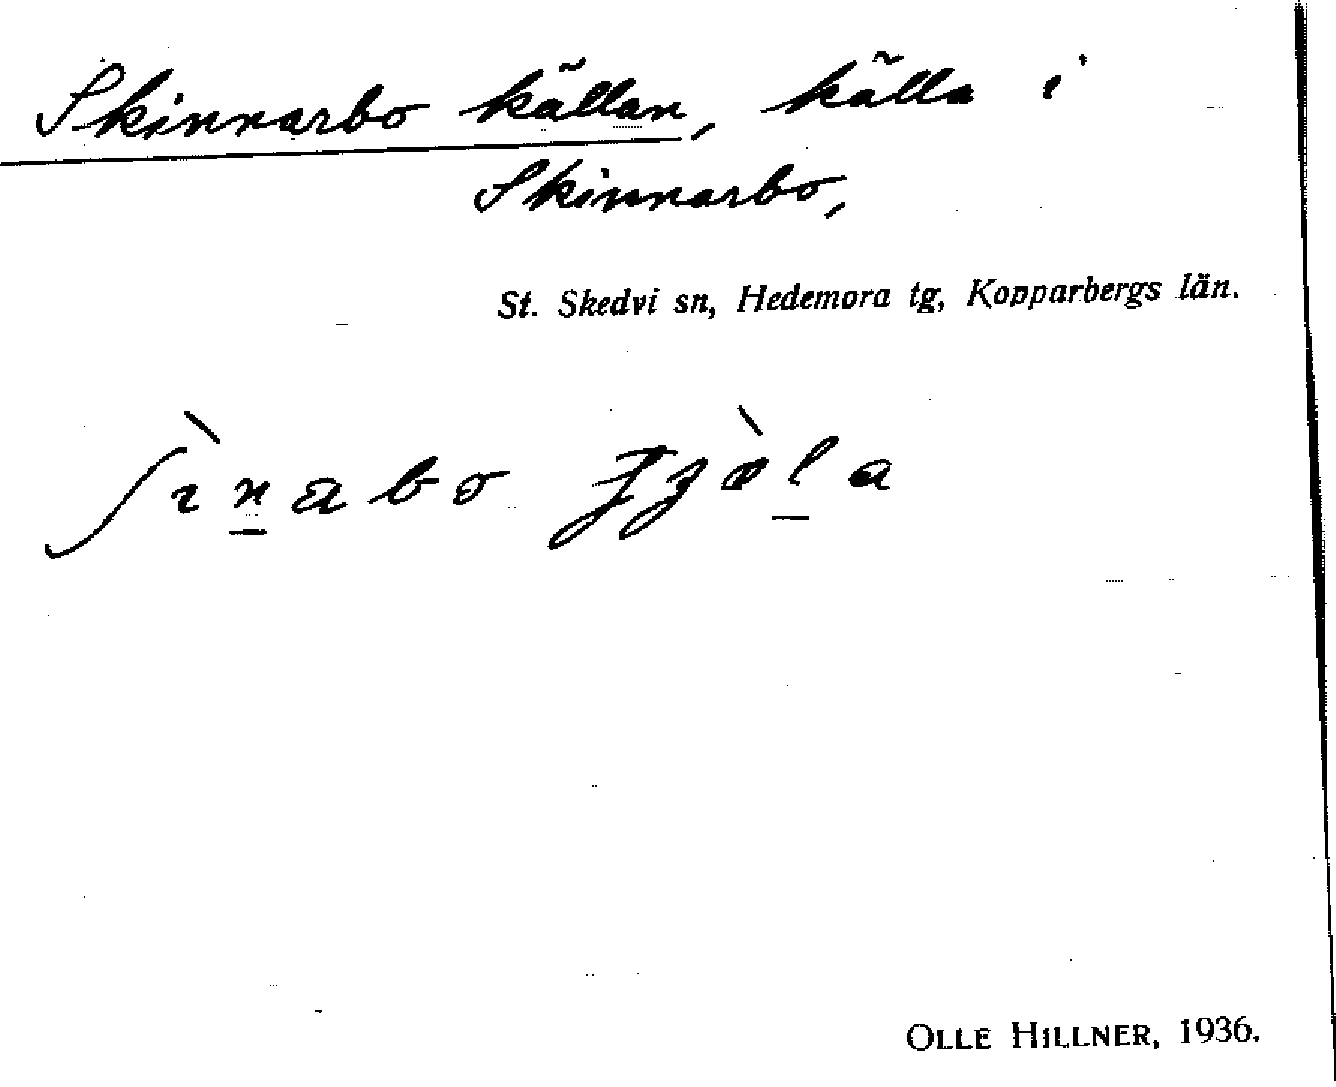 Skinnarbo källan, källa i
Skinnarbo,
St. Skedvi sn, Hedemora tg, Kopparbergs län.
OLLE HILLNER, 1936.